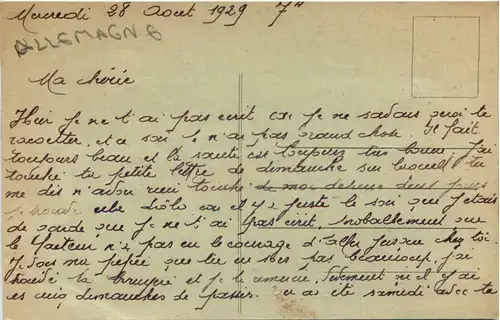 Mercredi 28 Aout 1929 7h
ALLEMAGNE
Ma chérie
Hier je ne t'ai pas ecrit car je ne savais quoi te
raconter, et ce soir je n'ai pas grand chose. Il fait
toujours beau et la santé est toujours très bonne. J'ai
touché ta petite lettre de dimanche sur laquelle tu
me dis n'avoir rien touché de moi depuis deux jours
je trouve cela drôle car il y a juste le soir que j'étais
de garde que je ne t'ai pas écrit, probablement que
le facteur n'a pas eu le courage d'aller jusque chez toi.
Je vois ma que tu ne pas beaucoup, j'ai
trouvé ta et je te remercie, seulement il y a
cinq dimanches de passer. été samedi avec te